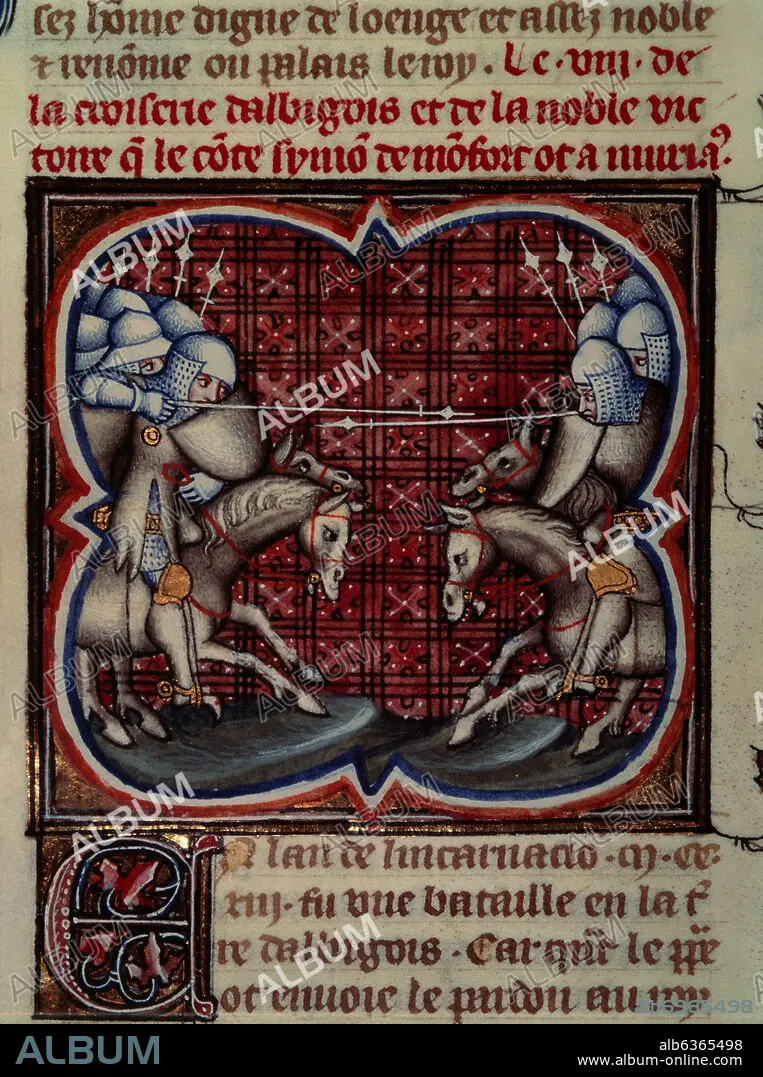 sez hõme digne de loenge et assez noble
⁊ renõme ou palais le roy . Le .viii. de
la croiserie dalbigois et de la noble vic
toire q̃ le cõte symõ de mõfort ot a muriaꝰ.
lan de lincarnaciõ .m. cc.
xiii. fu vne bataille en la t
re dalbigois . Car
ot enuoie le pardon au
ALBUM
ab6365498
ALBUM
alb6365498
www.album-online.com